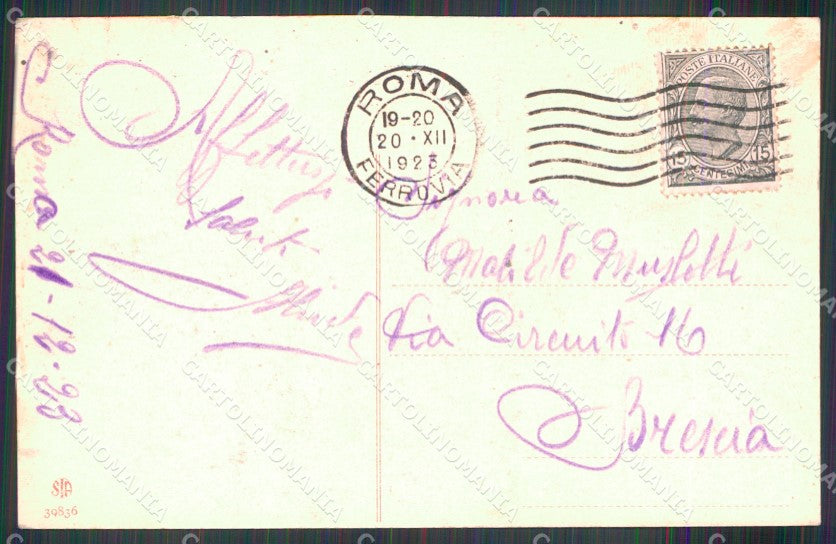 Roma 21-12-23
Affettuosi
saluti
ROMA
19-20
20 · XII
1923
FERROVIA
POSTE ITALIANE
15 15
CENTESIMI
Signora
Matilde
Via Circuito 16
Brescia
SIA
39836
CARTOLINOMANIA